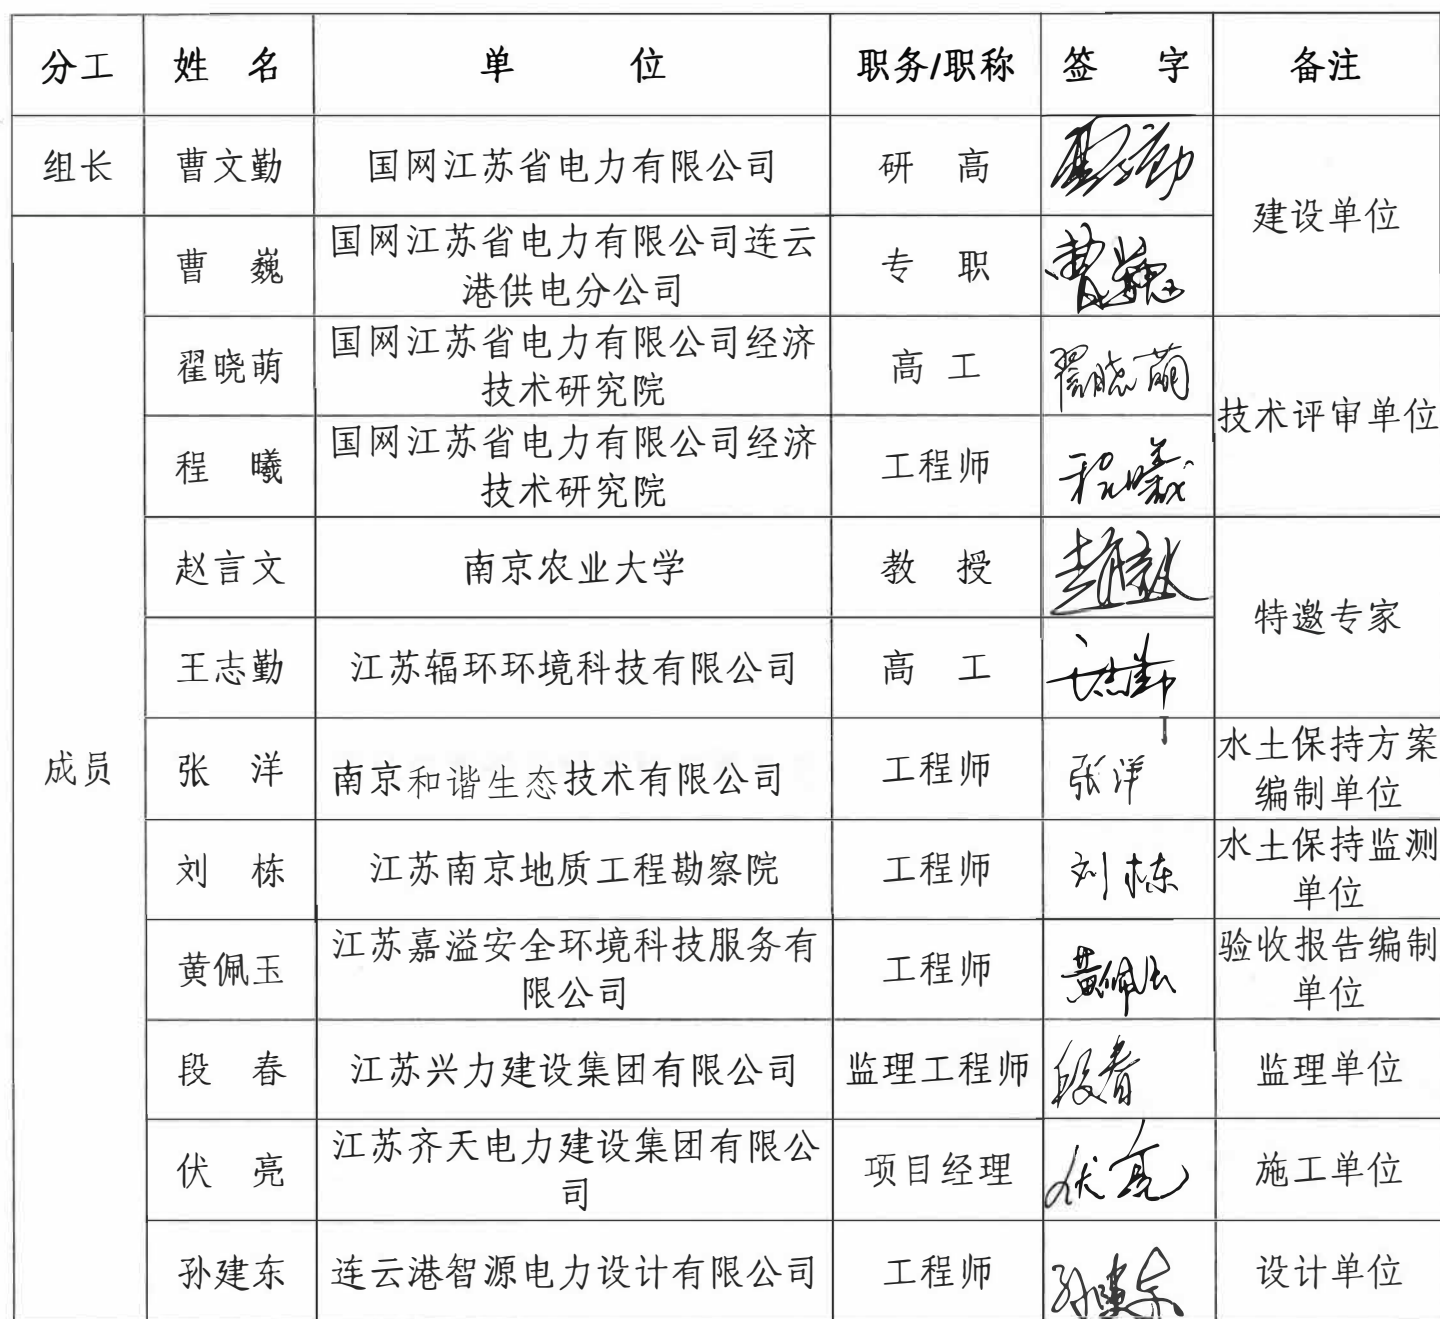 分工 姓 名 单 位 职务/职称 签 字 备注
组长 曹文勤 国网江苏省电力有限公司 研 高
建设单位
曹 巍 国网江苏省电力有限公司连云
港供电分公司 专 职 曹巍
翟晓萌 国网江苏省电力有限公司经济
技术研究院 高 工 翟晓萌
技术评审单位
程 曦 国网江苏省电力有限公司经济
技术研究院 工程师 程曦
赵言文 南京农业大学 教 授
特邀专家
王志勤 江苏辐环环境科技有限公司 高 工 王志勤
成员
张 洋 南京和谐生态技术有限公司 工程师 张洋 水土保持方案
编制单位
刘 栋 江苏南京地质工程勘察院 工程师 刘栋 水土保持监测
单位
黄佩玉 江苏嘉溢安全环境科技服务有
限公司 工程师 黄佩玉 验收报告编制
单位
段 春 江苏兴力建设集团有限公司 监理工程师 段春 监理单位
伏 亮 江苏齐天电力建设集团有限公
司 项目经理 伏亮 施工单位
孙建东 连云港智源电力设计有限公司 工程师 孙建东 设计单位